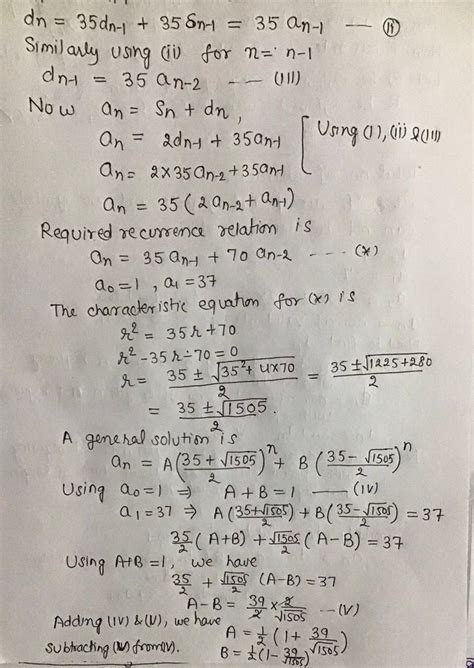 dn = 35dn-1 + 35Sn-1 = 35 an-1 --- (ii)
Similarly using (ii) for n = n-1
dn-1 = 35 an-2 --- (III)
Now an = Sn + dn,
an = 2dn-1 + 35an-1 [Using (1), (ii) & (III)
an = 2×35an-2 + 35an-1
an = 35(2an-2 + an-1)
Required recurrence relation is
an = 35 an-1 + 70 an-2 ---- (*)
a0 = 1, a1 = 37
The characteristic equation for (*) is
r² = 35r + 70
r² - 35r - 70 = 0
r = (35 ± √(35² + 4×70))/2 = (35 ± √(1225 + 280))/2
= (35 ± √1505)/2.
A general solution is
an = A((35 + √1505)/2)^n + B((35 - √1505)/2)^n
Using a0 = 1 ⇒ A + B = 1 --- (IV)
a1 = 37 ⇒ A((35 + √1505)/2) + B((35 - √1505)/2) = 37
35/2 (A+B) + √1505/2 (A-B) = 37
Using A+B = 1, we have
35/2 + √1505/2 (A-B) = 37
A-B = 39/2 × 2/√1505 --- (V)
Adding (IV) & (V), we have A = 1/2 (1 + 39/√1505)
subtracting (IV) from (V). B = 1/2 (1 - 39/√1505)